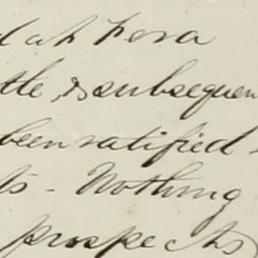 at Fera
ttle, & subsequen
been ratified
ts - Nothing
prospects